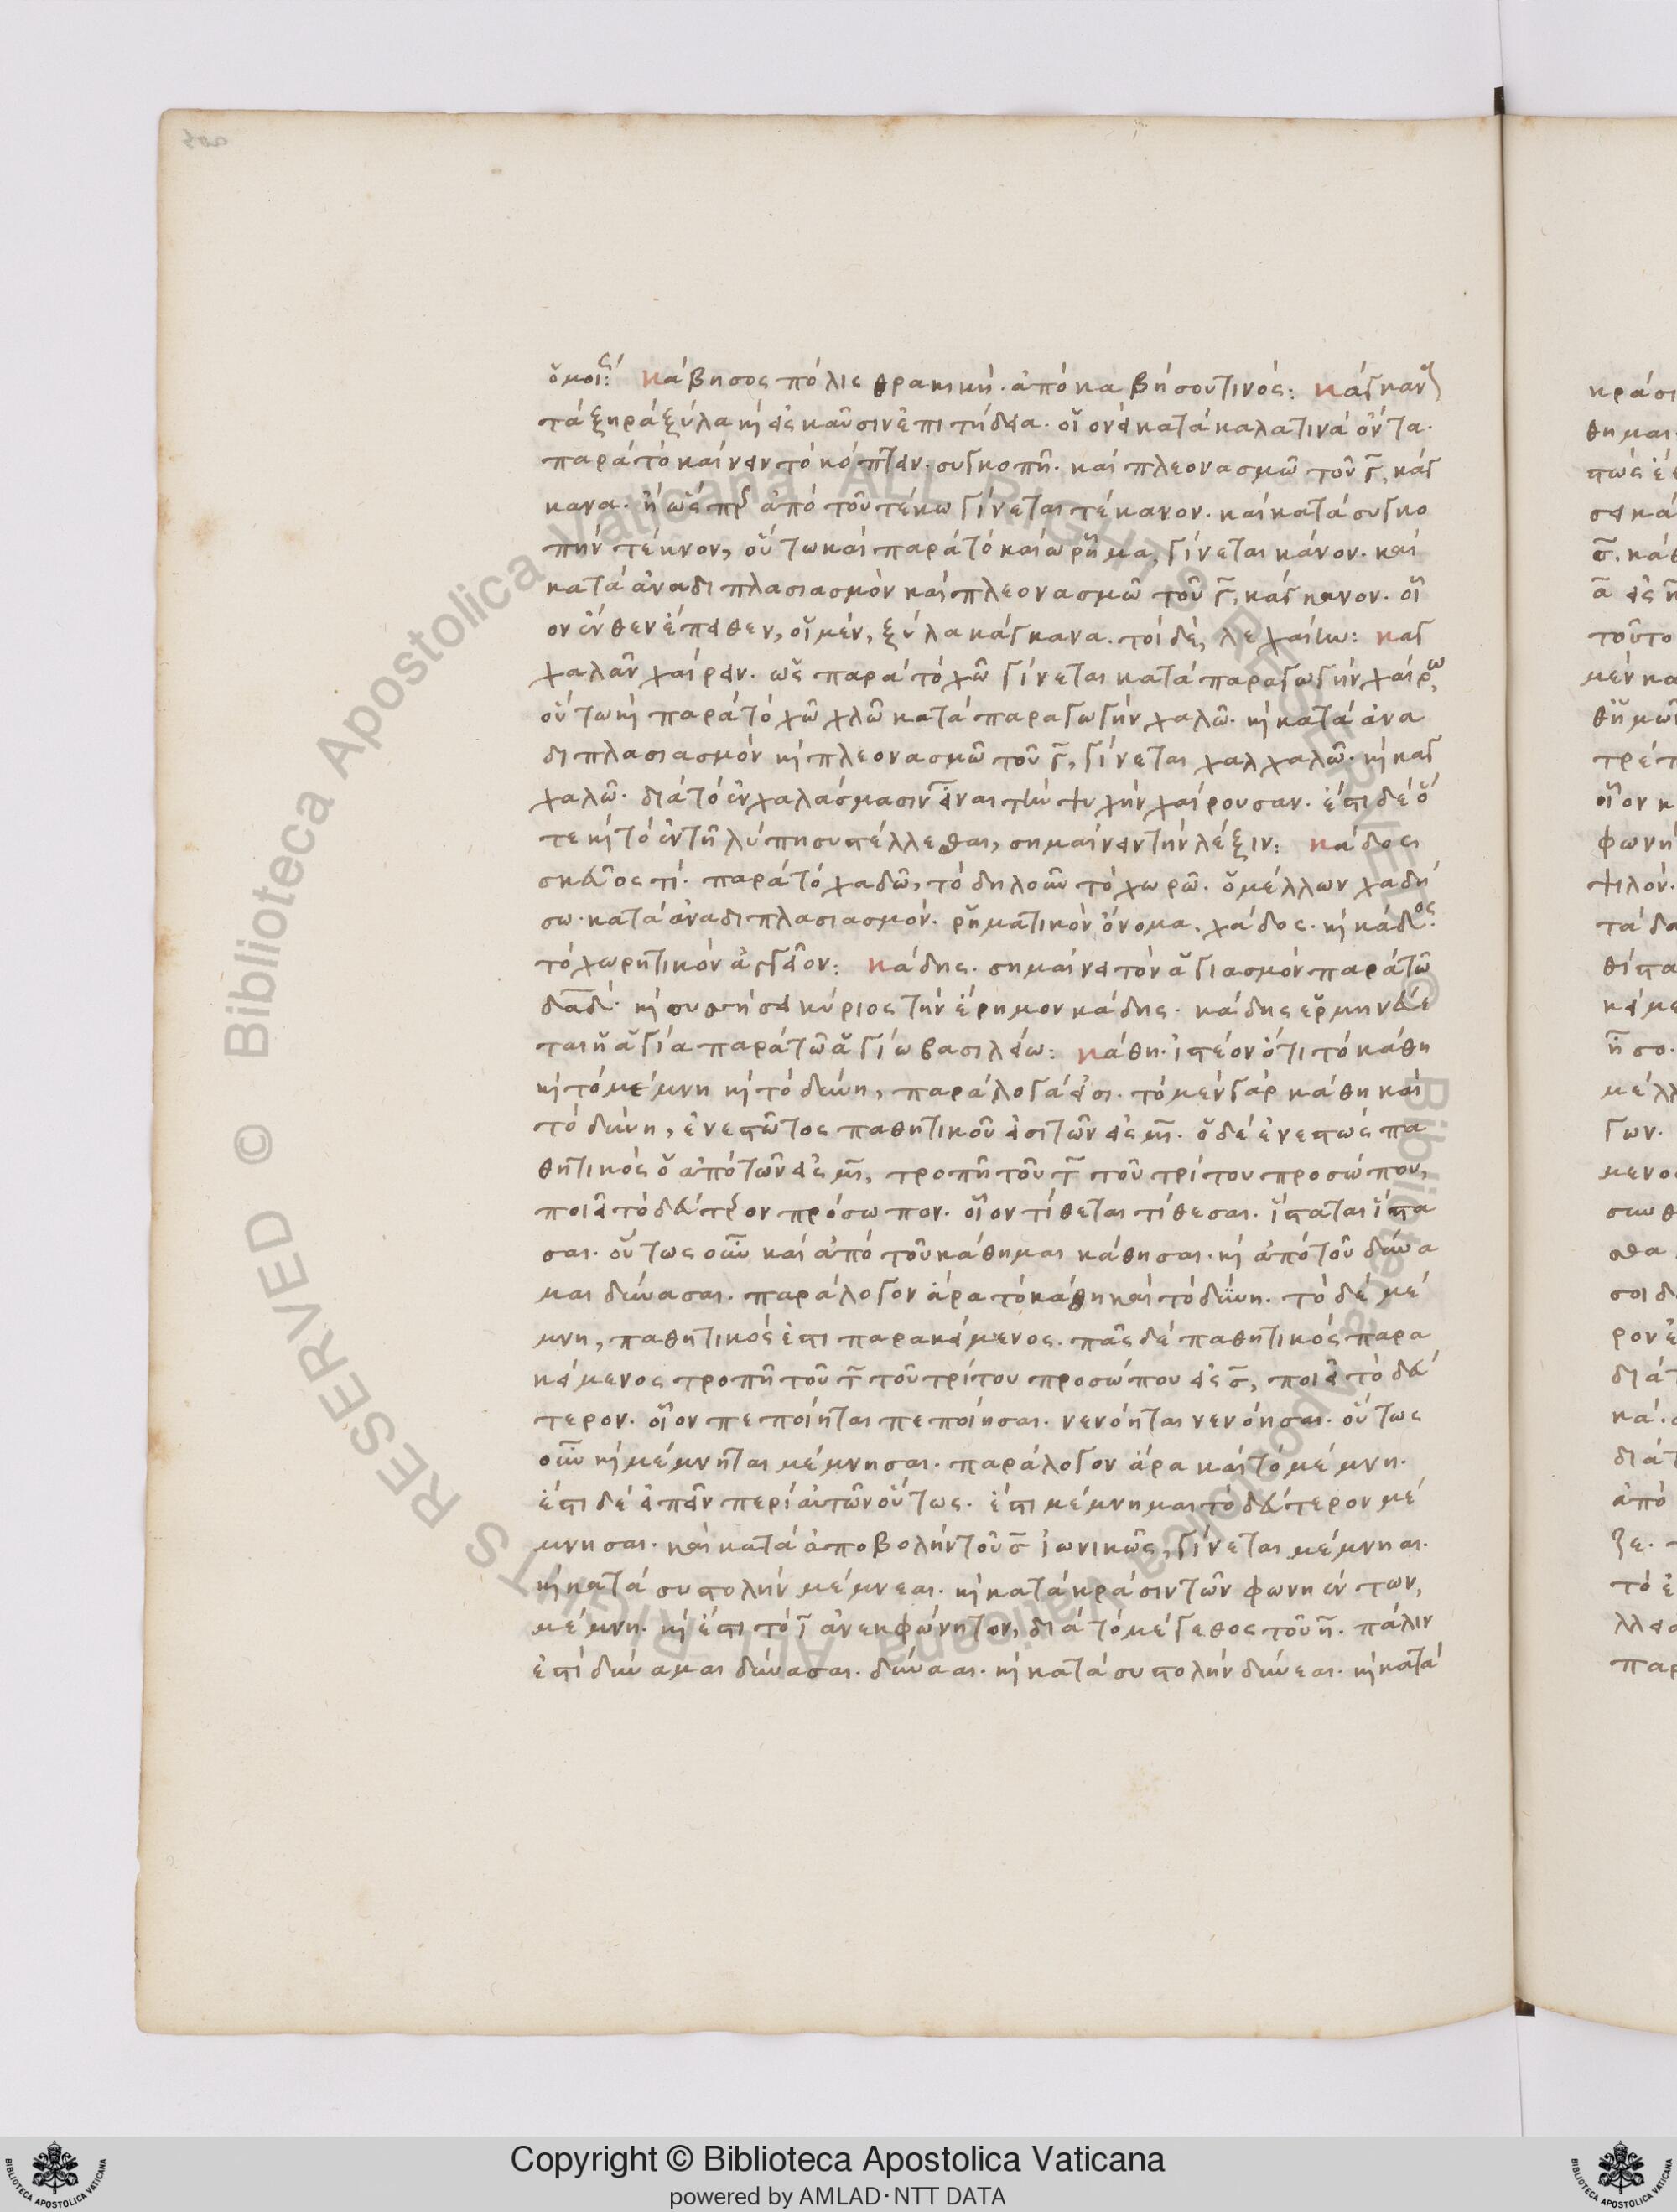 ὅμοιος: Κάβησος πόλις θρακική. ἀπὸ καβήσου τινός: Κάγκανα
τὰ ξηρὰ ξύλα κὶ εἰς καῦσιν ἐπιτήδεια. οἱονεὶ κατακαλατινὰ ὄντα.
παρὰ τὸ καίνειν τὸ κόπτειν. συγκοπῇ. καὶ πλεονασμῶ τοῦ γ̅, κάγ
κανα. ἢ ὥσπερ ἀπὸ τοῦ τέκω γίνεται τέκανον. καὶ κατὰ συγκο
πὴν τέκνον, οὕτω καὶ παρὰ τὸ καίω ῥῆμα, γίνεται κάνον. καὶ
κατὰ ἀναδιπλασιασμὸν καὶ πλεονασμῶ τοῦ γ̅, κάγκανον. οἷ
ον ἔνθεν ἐπεθεν, οἱ μὲν, ξύλα κάγκανα. τοὶ δὲ, λεχαίων: Καγ
χαλᾶν χαίρειν. ὡς παρὰ τὸ χῶ γίνεται κατὰ παραγωγὴν χαίρω,
οὕτω κὶ παρὰ τὸ χῶ χλῶ κατὰ παραγωγὴν χαλῶ. κὶ κατὰ ἀνα
διπλασιασμὸν κὶ πλεονασμῶ τοῦ γ̅, γίνεται χαλχαλῶ. κὶ καγ
χαλῶ. διὰ τὸ ἐν χαλάσμασιν εἶναι τὴν ψυχὴν χαίρουσαν. ἔστι δὲ ὅ
τε κὶ τὸ ἐν τῆ λύπη συστέλλεσθαι, σημαίνειν τὴν λέξιν: Κάδοσ
σκεῦος τί. παρὰ τὸ χαδῶ, τὸ δηλοῦν τὸ χωρῶ. ὁ μέλλων χαδή
σω. κατὰ ἀναδιπλασιασμόν. ῥηματικὸν ὄνομα, χάδος. κὶ κάδος.
τὸ χωρητικὸν ἀγγεῖον: Κάδης. σημαίνει τὸν ἁγιασμὸν παρὰ τῶ
δα̅δ. κὶ συσσείσει κύριος τὴν ἔρημον κάδης. κάδης ἑρμηνεύε
ται ἡ ἁγία παρὰ τῶ ἁγίω βασιλείω: Κάθη. ἰστέον ὅτι τὸ κάθη
κὶ τὸ μέμνη κὶ τὸ δύνη, παράλογά εἰσι. τὸ μὲν γὰρ κάθη καὶ
τὸ δύνη, ἐνεστῶτος παθητικοῦ εἰσι τῶν εἰς μ̅ι̅. ὁ δὲ ἐνεστὼς πα
θητικὸς ὁ ἀπὸ τῶν εἰς μ̅ι̅, τροπῆ τοῦ τ̅ τοῦ τρίτου προσώπου,
ποιεῖ τὸ δεύτερον πρόσωπον. οἷον τίθεται τίθεσαι. ἵσταται ἵστα
σαι. οὕτως οὖν καὶ ἀπὸ τοῦ κάθημαι κάθησαι. κὶ ἀπὸ τοῦ δύνα
μαι δύνασαι. παράλογον ἄρα τὸ κάθη καὶ τὸ δύνη. τὸ δὲ μέ
μνη, παθητικός ἐστι παρακείμενος. πᾶς δὲ παθητικὸς παρα
κείμενος τροπῆ τοῦ τ̅ τοῦ τρίτου προσώπου εἰς σ̅, ποιεῖ τὸ δεύ
τερον. οἷον πεποίηται πεποίησαι. νενόηται νενόησαι. οὕτως
οὖν κὶ μέμνηται μέμνησαι. παράλογον ἄρα καὶ τὸ μέμνη.
ἔστι δὲ εἰπεῖν περὶ αὐτῶν οὕτως. ἔστι μέμνημαι τὸ δεύτερον μέ
μνησαι. καὶ κατὰ ἀποβολὴν τοῦ σ̅ ἰωνικῶς, γίνεται μέμνηαι.
κὶ κατὰ συστολὴν μέμνεαι. κὶ κατὰ κρᾶσιν τῶν φωνηέντων,
μέμνη. κὶ ἔστι τὸ ι̅ ἀνεκφώνητον, διὰ τὸ μέγεθος τοῦ η̅. πάλιν
ἐστὶ δύναμαι δύνασαι. δύνααι. κὶ κατὰ συστολὴν δύνεαι. κὶ κατὰ